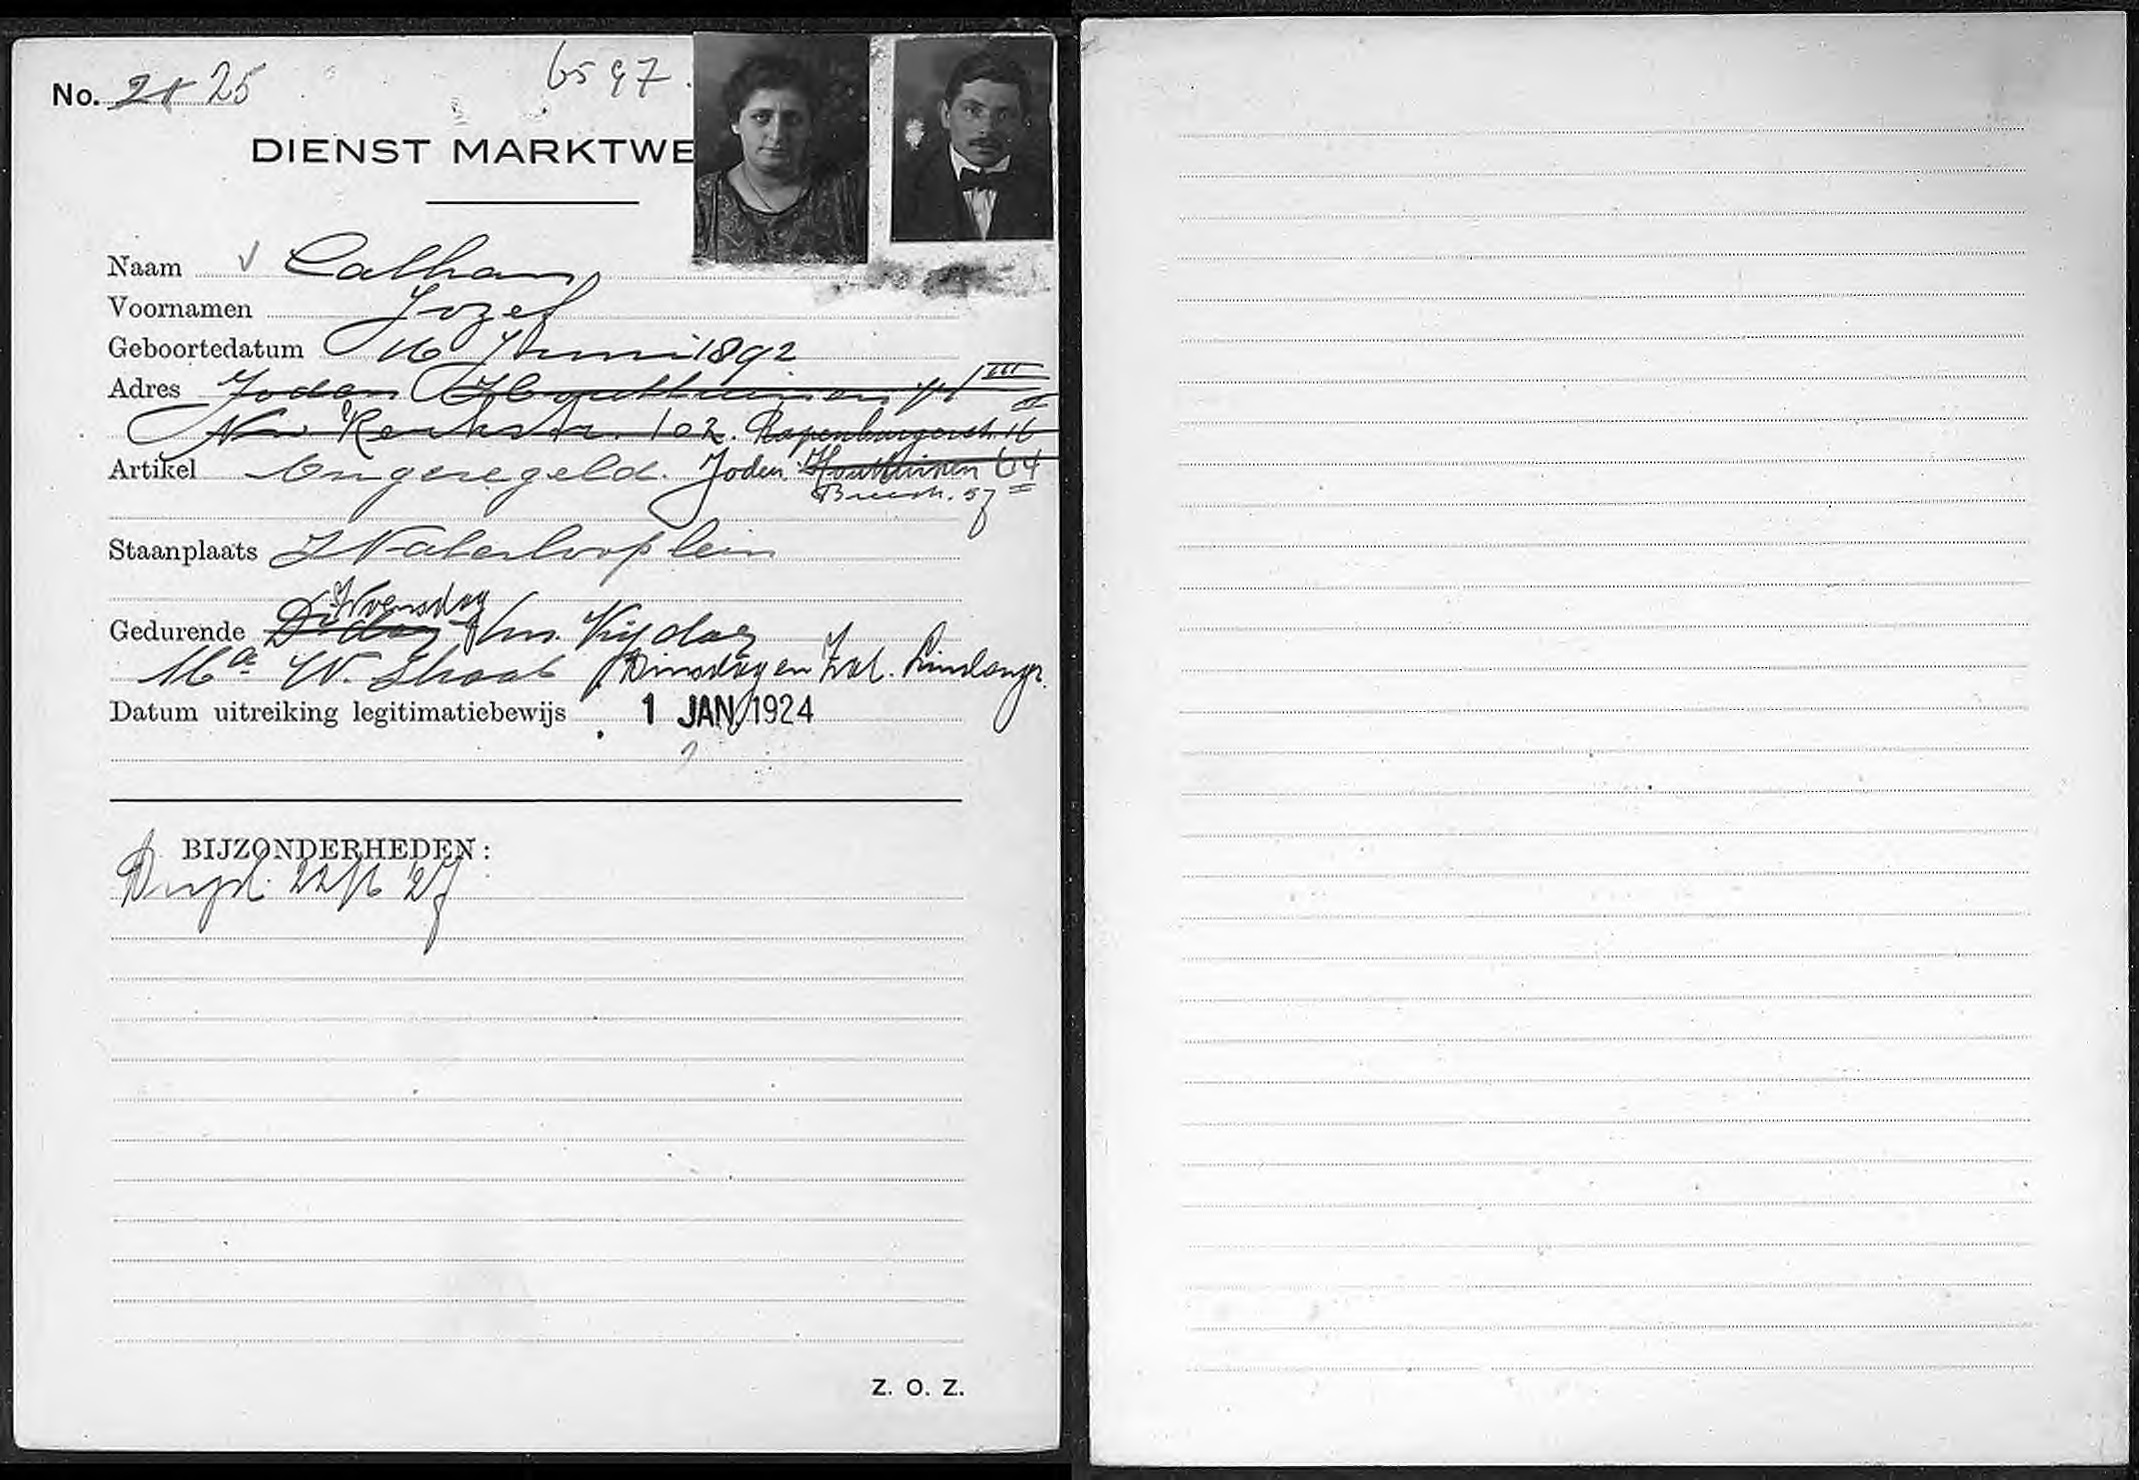 No. 21 25 6597.
DIENST MARKTWE
Naam Calham
Voornamen Jozef
Geboortedatum 16 Juni 1892
Adres Joden Houttuinen 41 III
Nw Kerkstr. 102. Rapenburgerstr. 16 II
Artikel Ongeregeld. Joden Houttuinen 64
Breestr. 57 II
Staanplaats Waterlooplein
Woensdag
Gedurende t/m. Vrijdag
Mª W. Straat Dinsdag en Zat. Lindengr.
Datum uitreiking legitimatiebewijs 1 JAN. 1924
BIJZONDERHEDEN:
22/6 27
Z. O. Z.